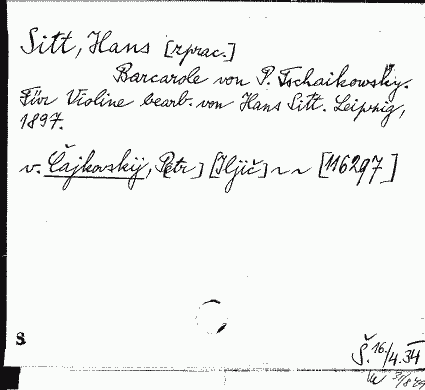 Sitt, Hans [zprac.]
Barcarole von P. Tschaikowsky.
Für Violine bearb. von Hans Sitt. Leipzig,
1897.
v. Čajkovskij, Petr] [Iljič] ~ ~ [116297]
8
Š. 16/4.34